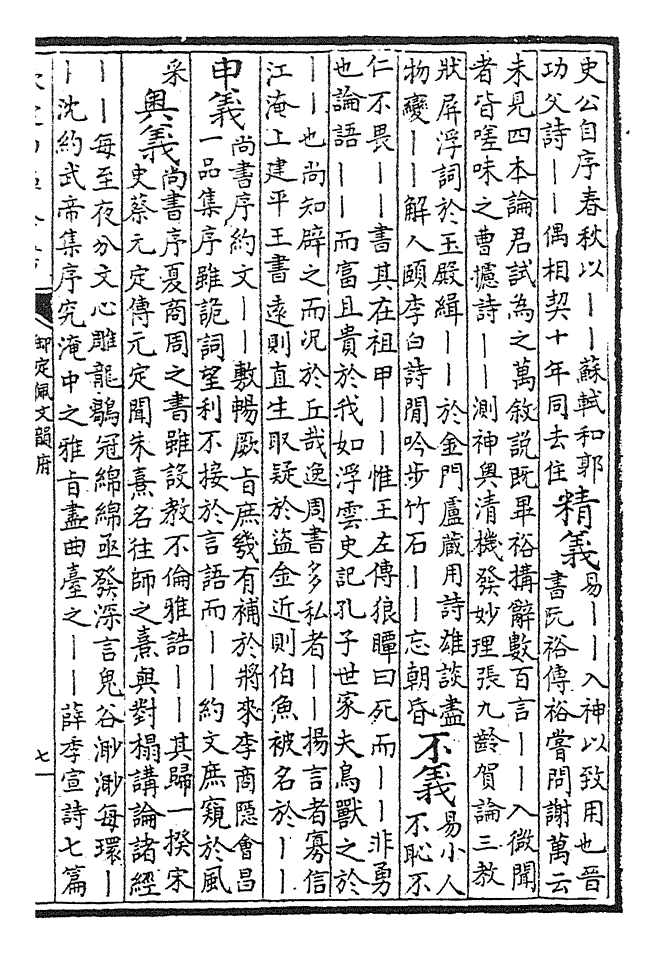 史公自序春秋以丨丨蘇軾和郭
功父詩丨丨偶相契十年同去住
精義
易丨丨入神以致用也晉
書阮裕傳裕嘗問謝萬云
未見四本論君試為之萬敘說既畢裕搆辭數百言丨丨入微聞
者皆嗟味之曹攄詩丨丨測神奧清機發妙理張九齡賀論三教
狀屏浮詞於玉殿緝丨丨於金門盧蕆用詩雄談盡
物變丨丨解人頤李白詩閒吟步竹石丨丨忘朝昏
不義
易小人
不恥不
仁不畏丨丨書其在祖甲丨丨惟王左傳狼瞫曰死而丨丨非勇
也論語丨丨而富且貴於我如浮雲史記孔子世家夫鳥獸之於
丨丨也尚知辟之而況於丘哉逸周書多私者丨丨揚言者寡信
江淹上建平王書遠則直生取疑於盜金近則伯魚被名於丨丨
申義
尚書序約文丨丨敷暢厥旨庶幾有補於將來李商隱會昌
一品集序雖詭詞望利不接於言語而丨丨約文庶窺於風
采
奧義
尚書序夏商周之書雖設教不倫雅誥丨丨其歸一揆宋
史蔡元定傳元定聞朱熹名往師之熹與對榻講論諸經
丨丨每至夜分文心雕龍鶡冠綿綿亟發深言鬼谷渺渺每環丨
丨沈約武帝集序究淹中之雅旨盡曲臺之丨丨薛季宣詩七篇
御定佩文韻府
七